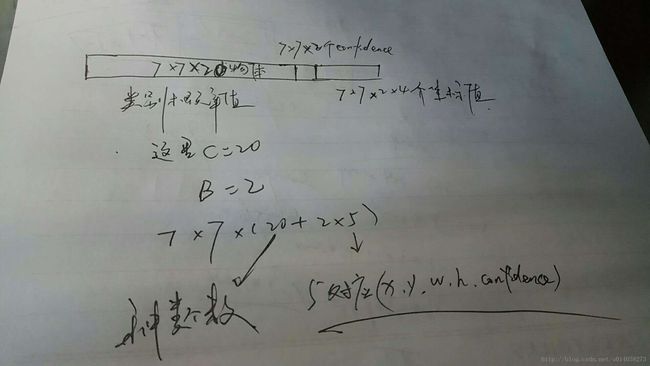 7×7×2个confidence
7×7×20
类别概率值
7×7×2×4个坐标值
这里C=20
B=2
7×7×(20+2×5)
种类个数
5对应(x,y,w,h,confidence)
http://blog.csdn.net/u014038273